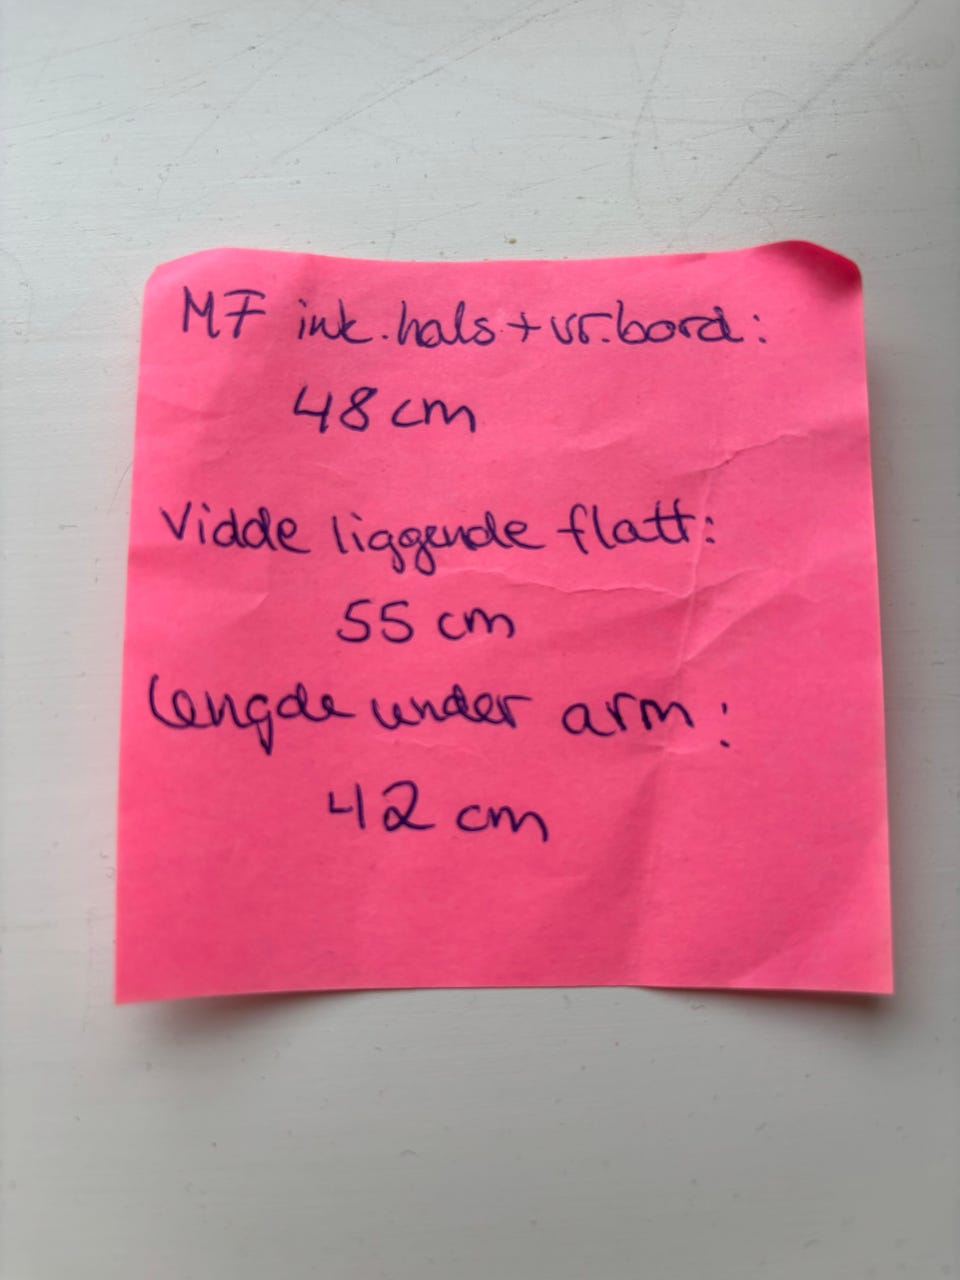 MF ink.hals + vr.bord:
48 cm
Vidde liggende flatt:
55 cm
Lengde under arm:
42 cm